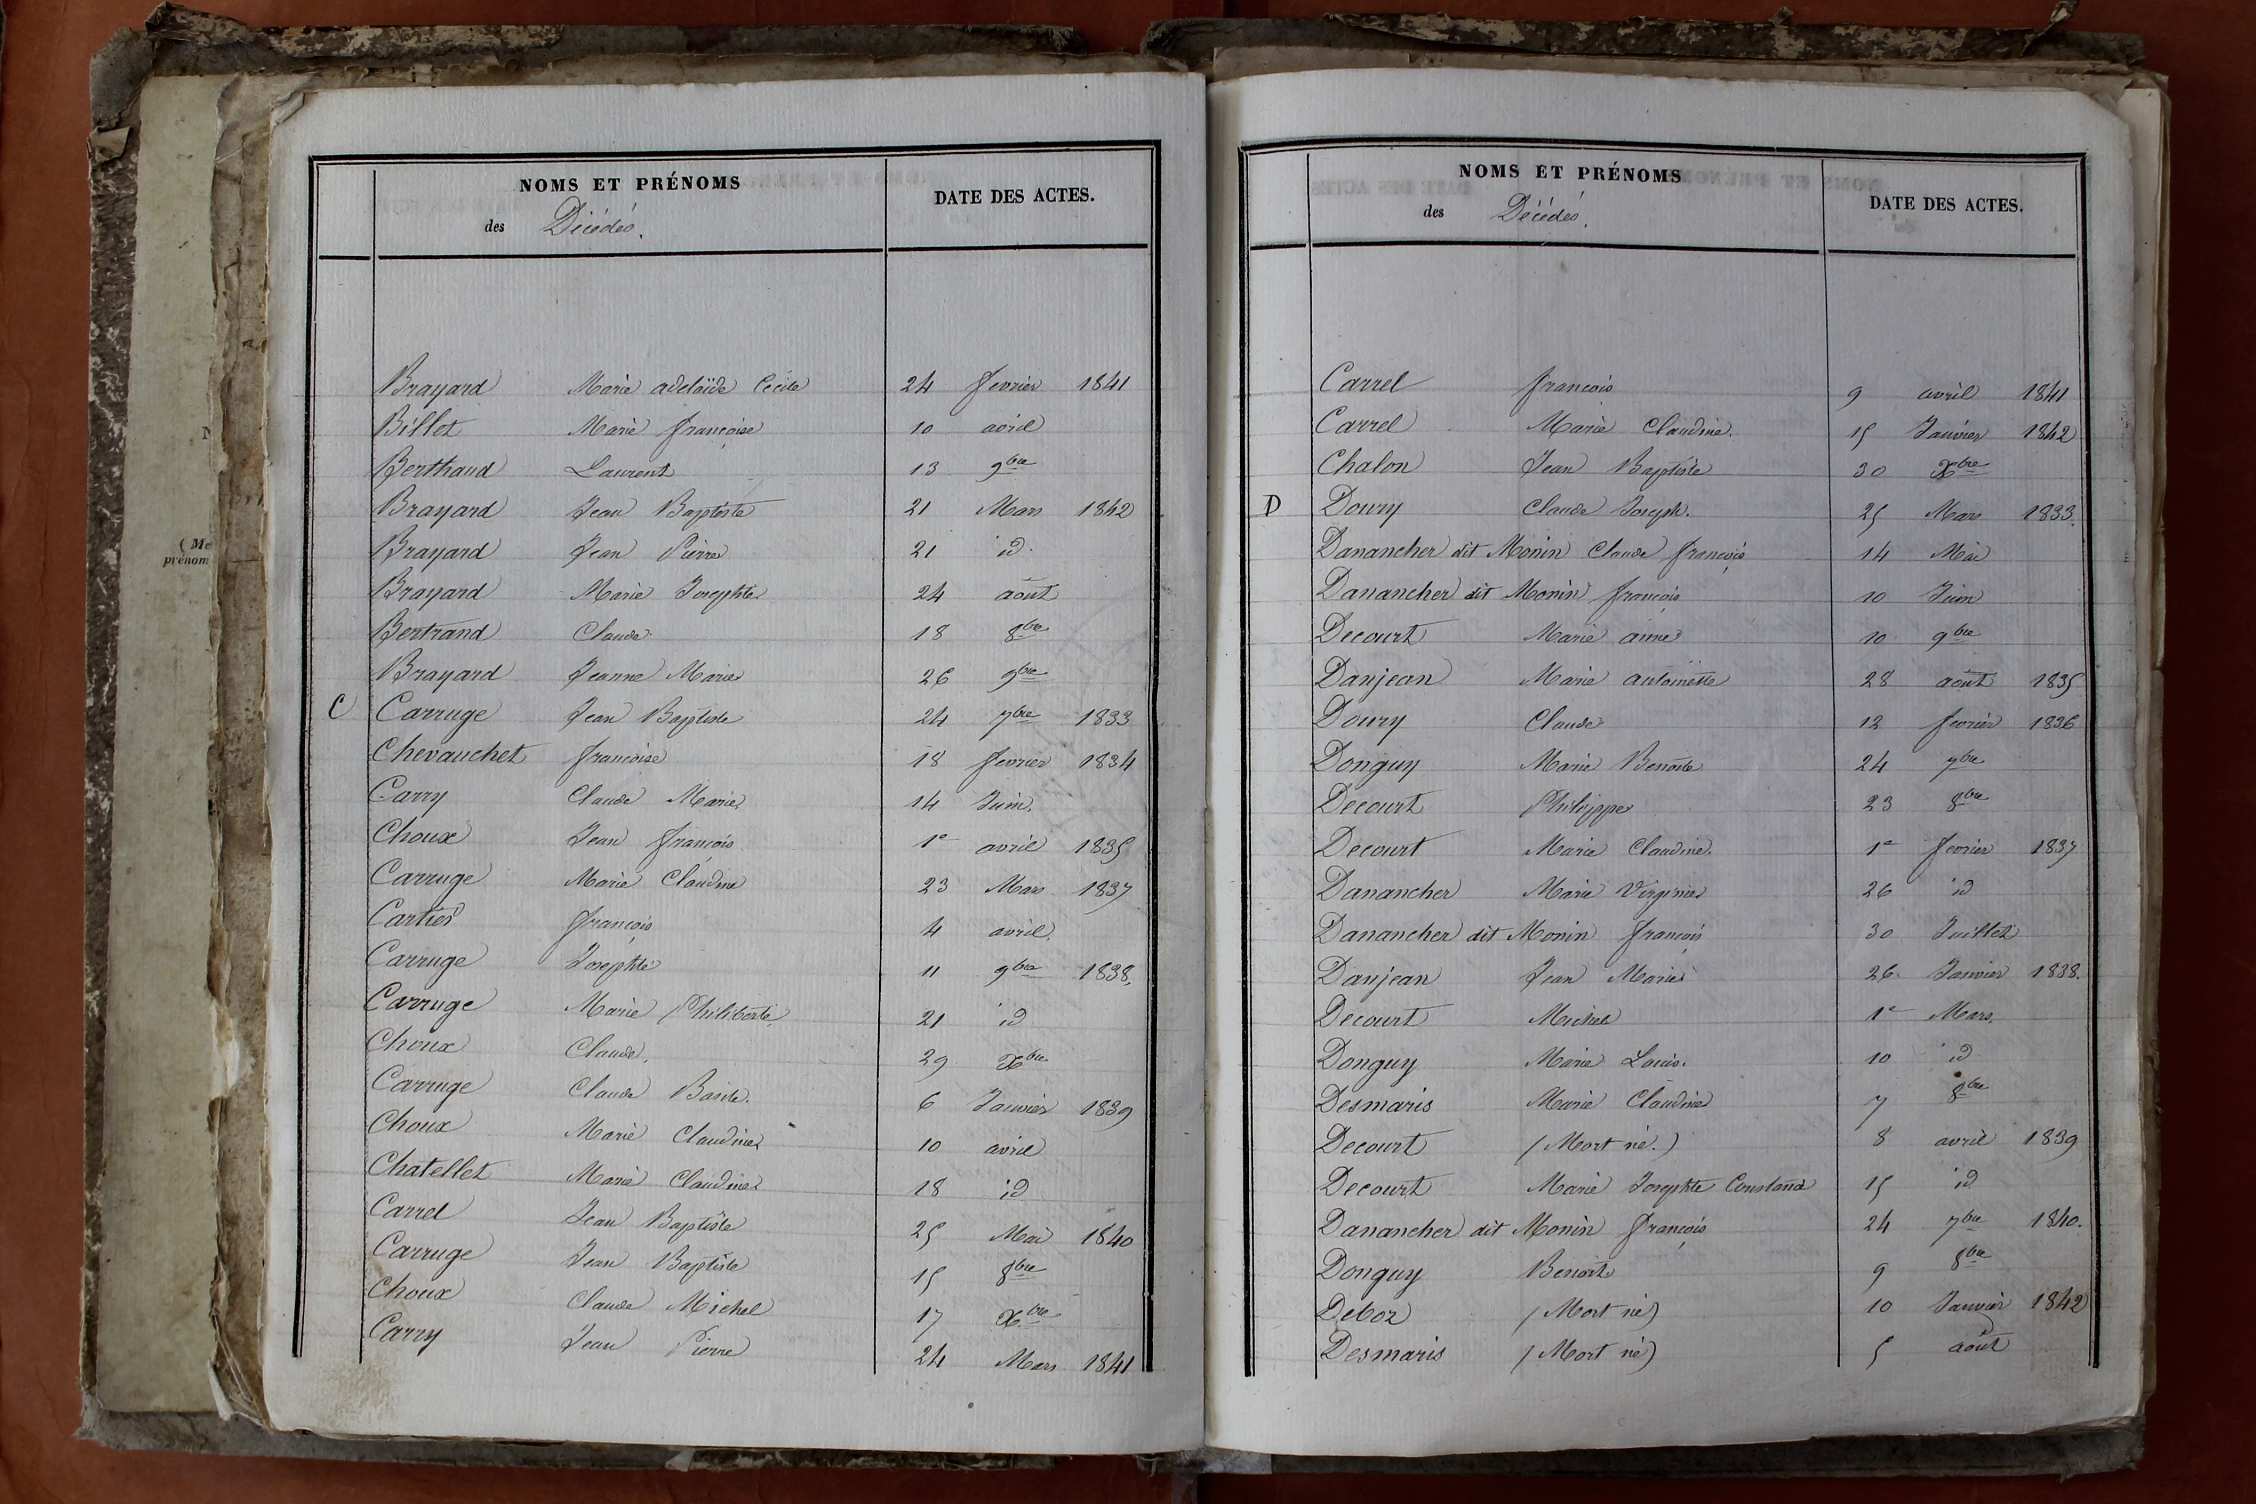 N
(Me
prénom
NOMS ET PRÉNOMS
des Décédés.
DATE DES ACTES.
Brayard Marie adelaïde Cécile 24 fevrier 1841
Billot Marie françoise 10 avril
Berthaud Laurent 13 9bre
Brayard Jean Baptiste 21 Mars 1842
Brayard Jean Pierre 21 id.
Brayard Marie Josephte 24 août
Bertrand Claude 18 8bre
Brayard Jeanne Marie 26 9bre
C Carruge Jean Baptiste 24 7bre 1833
Chevauchet françoise 18 fevrier 1834
Carry Claude Marie 14 Juin.
Choux Jean françois 1er avril 1835
Carruge Marie Claudine 23 Mars 1837
Cartier françois 4 avril.
Carruge Josephte 11 9bre 1838.
Carruge Marie Philiberte 21 id
Choux Claude. 29 Xbre
Carruge Claude Basile. 6 Janvier 1839
Choux Marie Claudine 10 avril
Chatellet Marie Claudine 18 id
Carrel Jean Baptiste 25 Mai 1840
Carruge Jean Baptiste 15 8bre
Choux Claude Michel 17 Xbre
Carry Jean Pierre 24 Mars 1841
NOMS ET PRÉNOMS
des Décédés.
DATE DES ACTES.
Carrel françois 9 avril 1841
Carrel Marie Claudine. 15 Janvier 1842
Chalon Jean Baptiste 30 Xbre
D Doury Claude Joseph. 25 Mars 1833.
Danancher dit Monin Claude françois 14 Mai
Danancher dit Monin françois 10 Juin
Decourt Marie anne 10 9bre
Danjean Marie antoinette 28 août 1835
Doury Claude 12 fevrier 1836
Donguy Marie Benoite 24 7bre
Decourt Philippe 23 8bre
Decourt Marie Claudine. 1er fevrier 1837
Danancher Marie Virginie 26 id
Danancher dit Monin françois 30 Juillet
Danjean Jean Marie 26 Janvier 1838.
Decourt Michel 1er Mars.
Donguy Marie Louis. 10 id
Desmaris Marie Claudine 7 8bre
Decourt (Mort né.) 8 avril 1839
Decourt Marie Josephte Constand 15 id
Danancher dit Monin françois 24 7bre 1840.
Donguy Benoit 9 8bre
Deboz (Mort né) 10 Janvier 1842
Desmaris (Mort né) 5 août